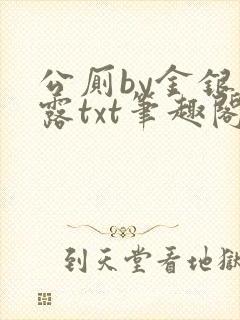 公厕by金银
露txt笔趣阁
到天堂看地獄